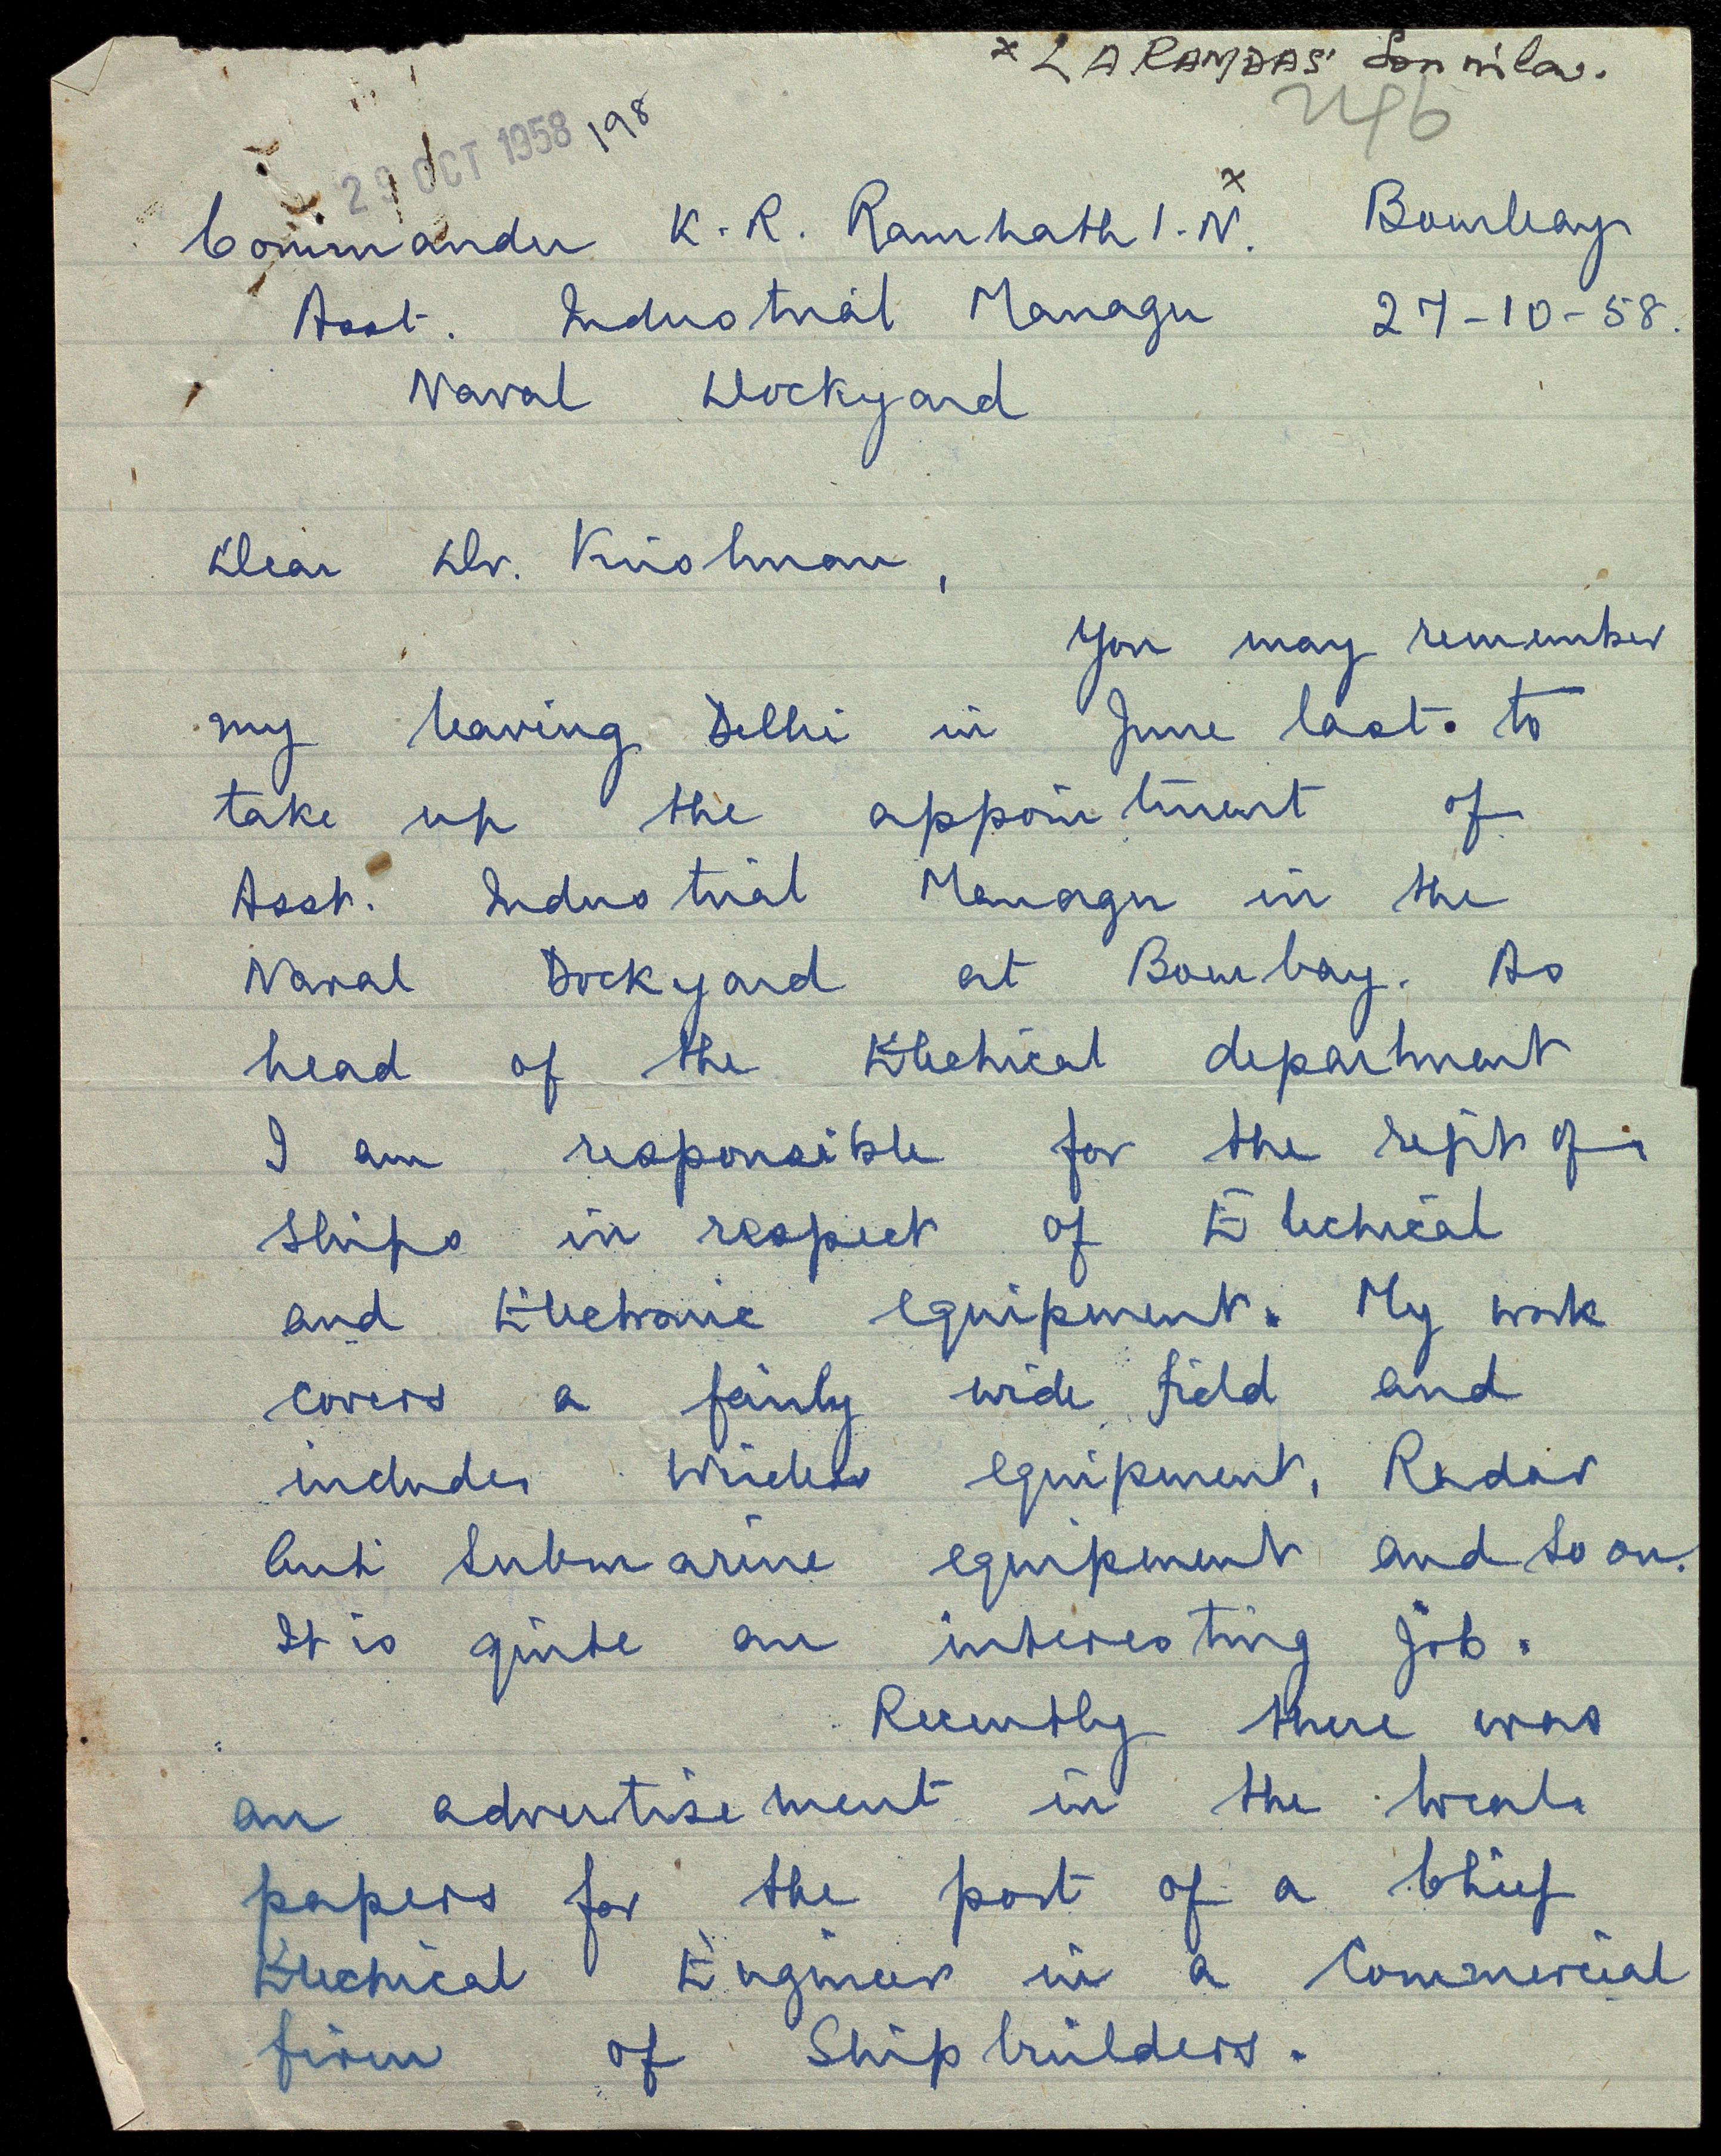 * L A RAMDAS' Son in law.
246
29 OCT 1958 198
Commander K. R. Ramnath I.N. x Bombay
Asst. Industrial Manager 27-10-58.
Naval Dockyard
Dear Dr. Krishnan,
You may remember
my leaving Delhi in June last. to
take up the appointment of
Asst. Industrial Manager in the
Naval Dockyard at Bombay. As
head of the Electrical department
I am responsible for the refit of
Ships in respect of Electrical
and Electronic equipment. My work
covers a fairly wide field and
includes Wireless equipment, Radar
Anti Submarine equipment and so on.
It is quite an interesting job.
Recently there was
an advertisement in the local
papers for the post of a Chief
Electrical Engineer in a Commercial
firm of Ship builders.